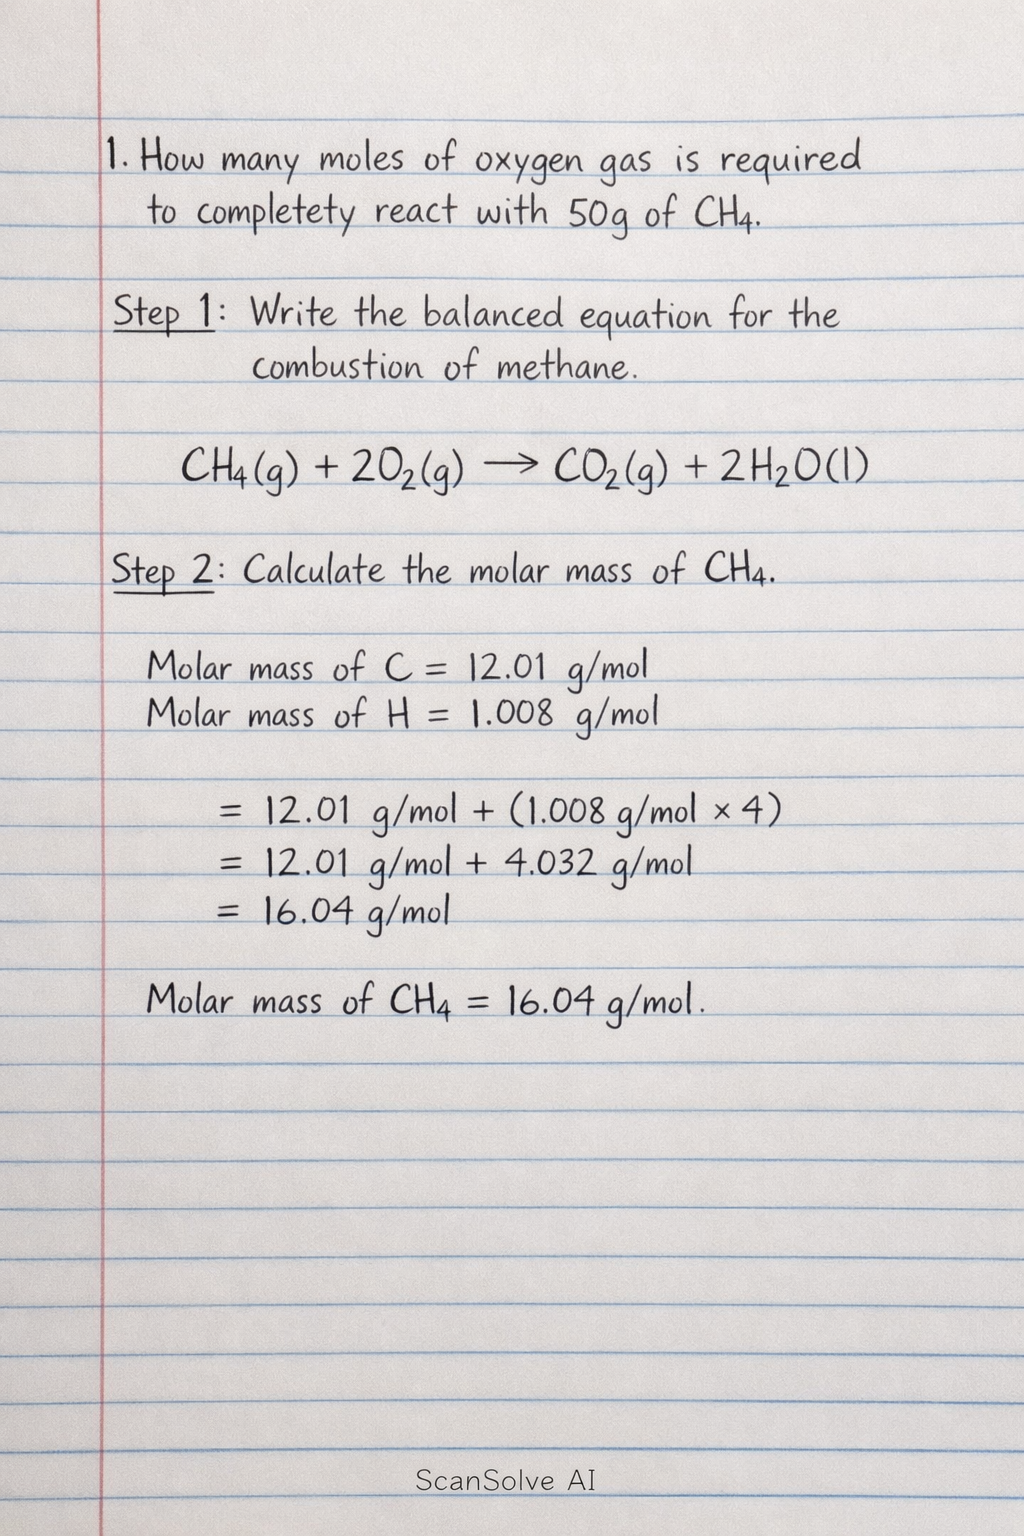 1. How many moles of oxygen gas is required
to completety react with 50g of CH₄.
Step 1: Write the balanced equation for the
combustion of methane.
CH₄(g) + 2O₂(g) → CO₂(g) + 2H₂O(l)
Step 2: Calculate the molar mass of CH₄.
Molar mass of C = 12.01 g/mol
Molar mass of H = 1.008 g/mol
= 12.01 g/mol + (1.008 g/mol × 4)
= 12.01 g/mol + 4.032 g/mol
= 16.04 g/mol
Molar mass of CH₄ = 16.04 g/mol.
ScanSolve AI